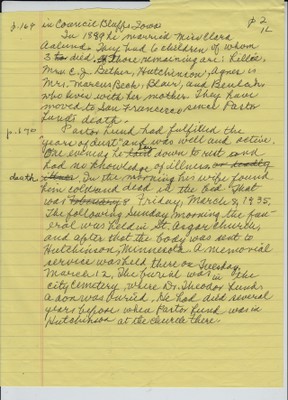 p. 169 in Council Bluffs, Iowa p 2
12
In 1899 he married Miss Clara
Aalund. They had 6 children of whom
3 died. Those remaining are: Lillie,
Mrs. E. J. Bether, Hutchinson; Agnes is
Mrs. Marcus Beck, Blair, and Beulah
who lives with her mother. They have
moved to San Francisco since Pastor
Lund's death.
p. 170 Pastor Lund had fulfilled the
"years of dust" and was well and active.
One evening he lay down to rest and
had no knowledge of illness or
death. In the morning his wife found
him cold and dead in the bed. That
was February 8 Friday, March 8, 1935.
The following Sunday morning the fun-
eral was held in St. Ansgar church,
and after that the body was sent to
Hutchinson, Minnesota. A memorial
service was held there on Tuesday,
March 12. The burial was in the
city cemetery, where Dr. Theodor Lund
a son was buried. He had died several
years before when Pastor Lund was in
Hutchinson at the church there.